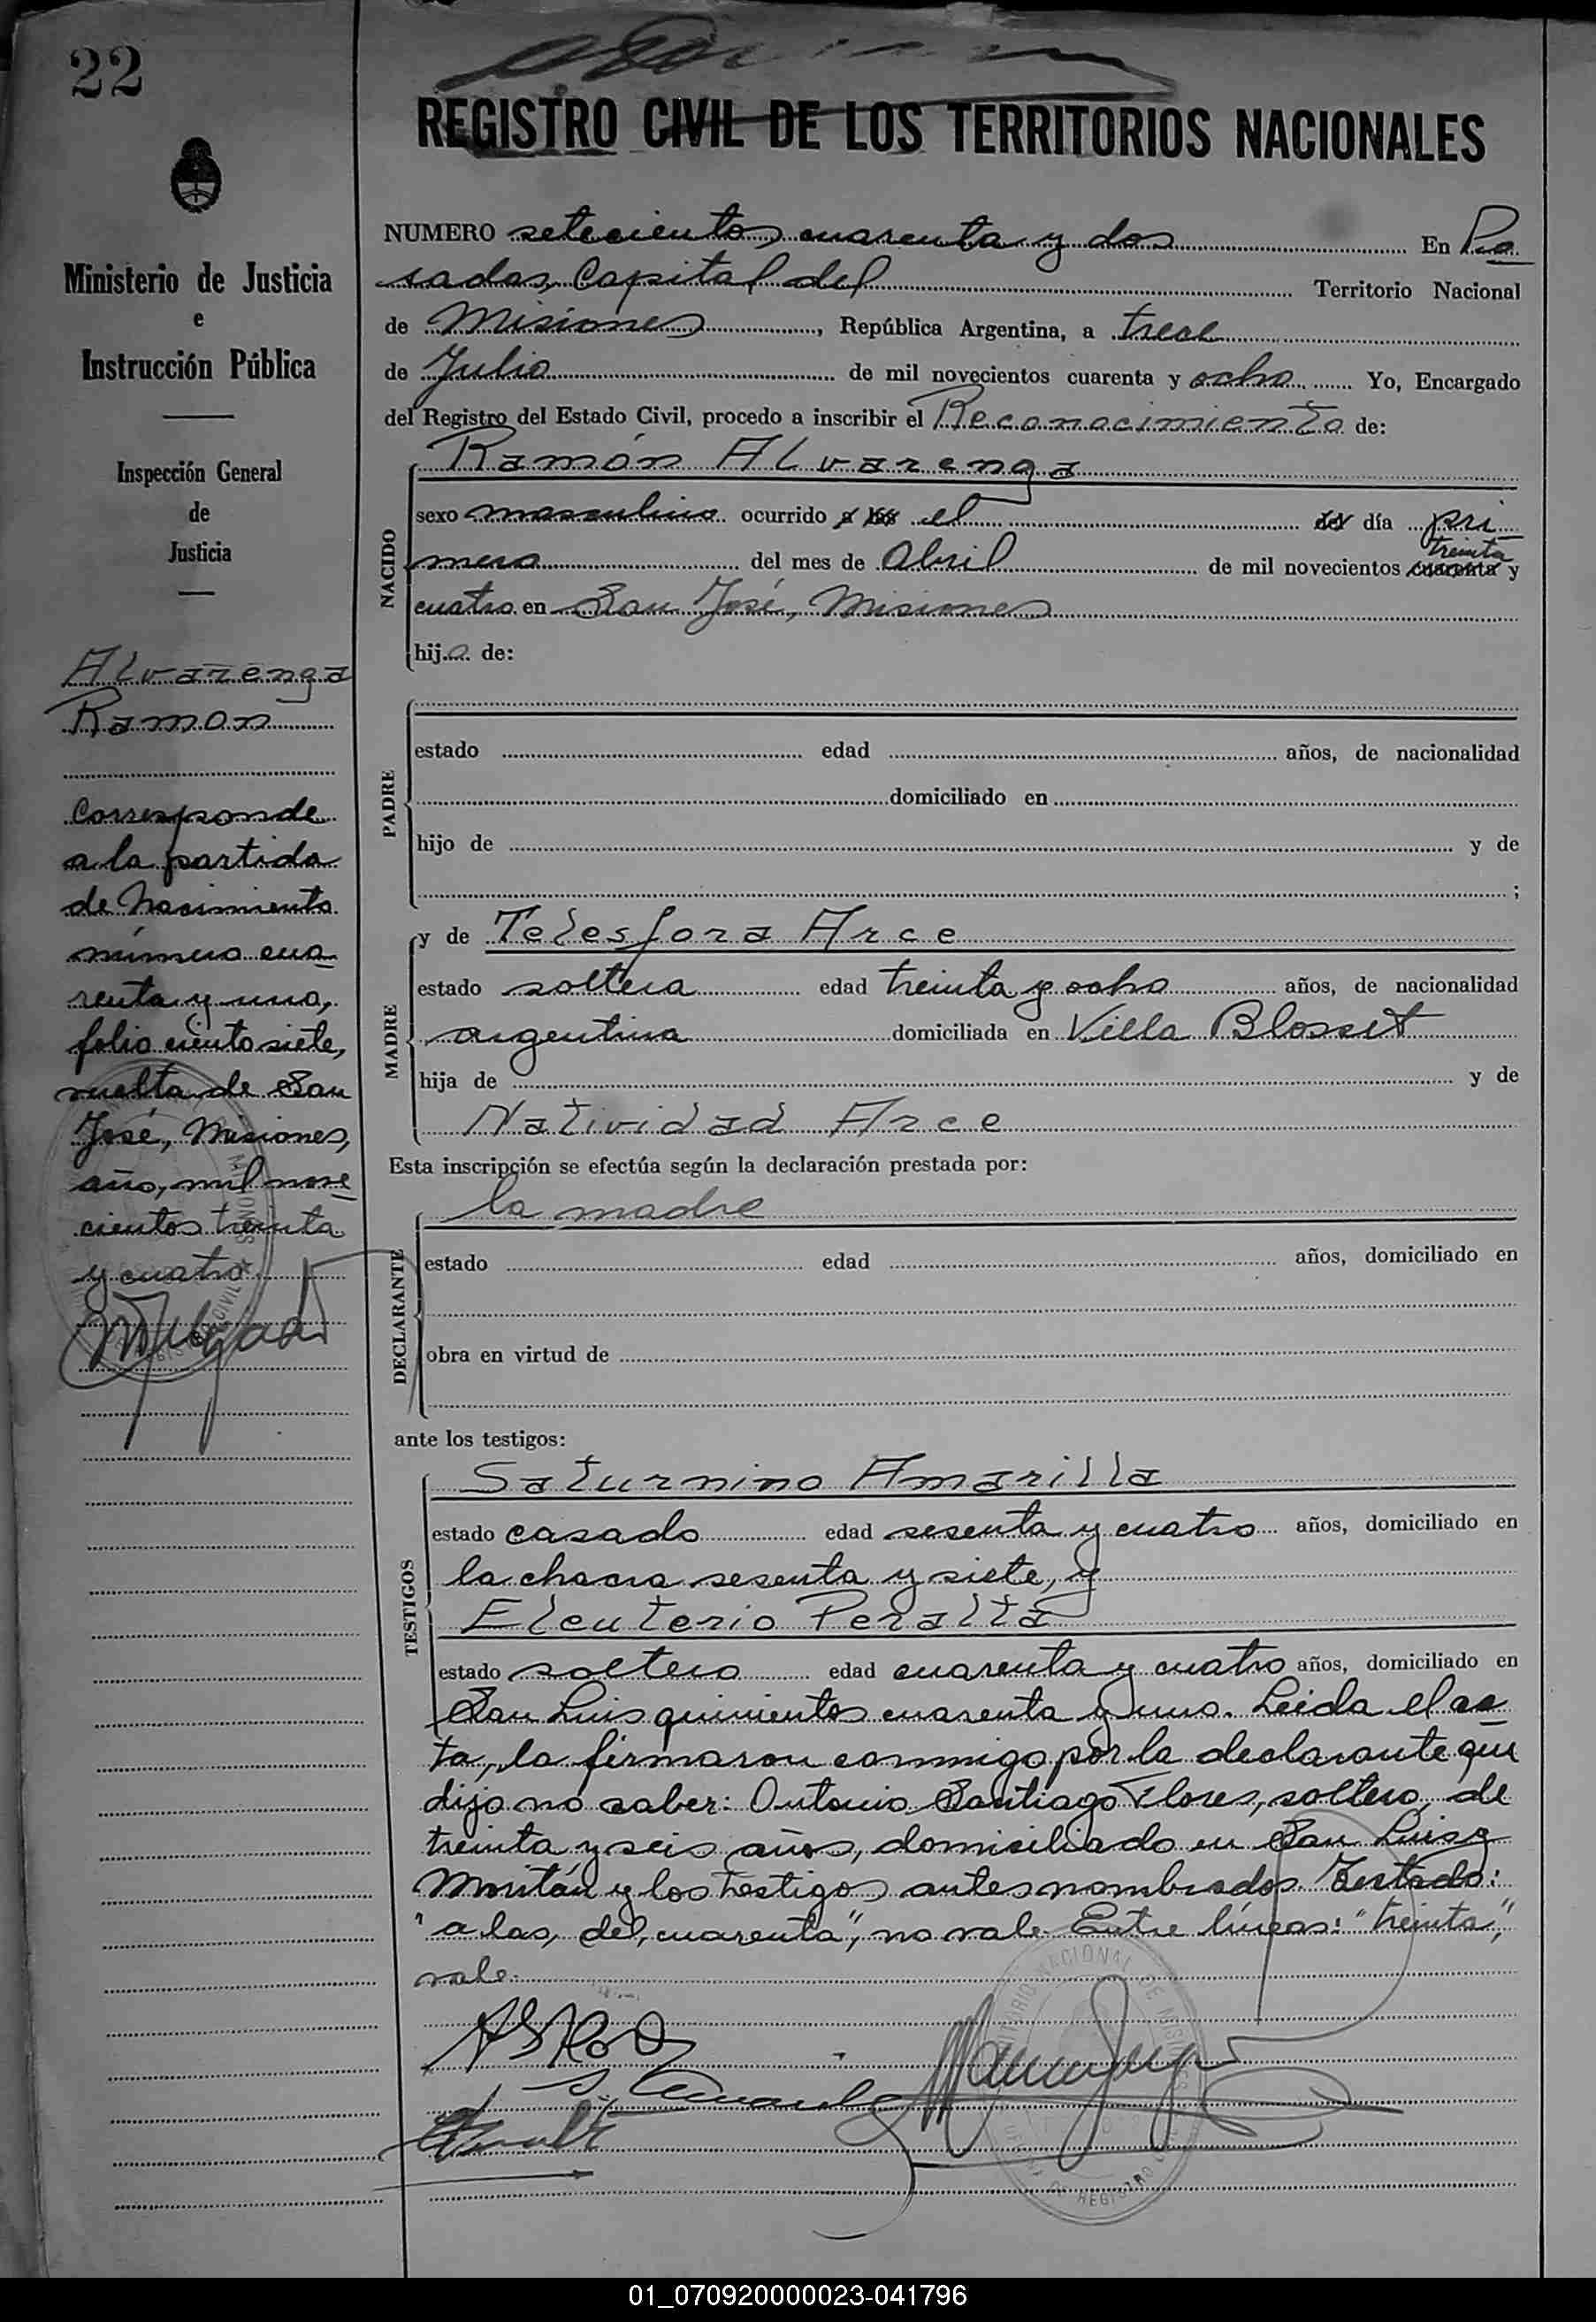 22
REGISTRO CIVIL DE LOS TERRITORIOS NACIONALES
Ministerio de Justicia
e
Instrucción Pública
Inspección General
de
Justicia
Alvarenga
Ramon
Corresponde
a la partida
de Nacimiento
número cua-
renta y uno,
folio ciento siete,
vuelta de San
José, Misiones,
año, mil nove-
cientos treinta
y cuatro
NUMERO setecientos cuarenta y dos En Po-
sadas, Capital del Territorio Nacional
de Misiones, República Argentina, a trece
de Julio de mil novecientos cuarenta y ocho Yo, Encargado
del Registro del Estado Civil, procedo a inscribir el Reconocimiento de:
NACIDO
Ramón Alvarenga
sexo masculino ocurrido a las el del día pri-
mero del mes de Abril de mil novecientos cuarenta treinta y
cuatro en San José, Misiones
hijo de:
PADRE
estado edad años, de nacionalidad
domiciliado en
hijo de y de
;
MADRE
y de Telesfora Arce
estado soltera edad treinta y ocho años, de nacionalidad
argentina domiciliada en Villa Blosset
hija de y de
Natividad Arce
Esta inscripción se efectúa según la declaración prestada por:
DECLARANTE
la madre
estado edad años, domiciliado en
obra en virtud de
ante los testigos:
TESTIGOS
Saturnino Amarilla
estado casado edad sesenta y cuatro años, domiciliado en
la chacra sesenta y siete, y
Eleuterio Peralta
estado soltero edad cuarenta y cuatro años, domiciliado en
San Luis quinientos cuarenta y uno. Leida el ac-
ta, la firmaron conmigo por la declarante que
dijo no saber: Antonio Santiago Flores, soltero, de
treinta y seis años, domiciliado en San Luis y
Moritán y los testigos antes nombrados. Testado:
"a las, del, cuarenta", no vale. Entre líneas: "treinta",
vale.
01_070920000023-041796